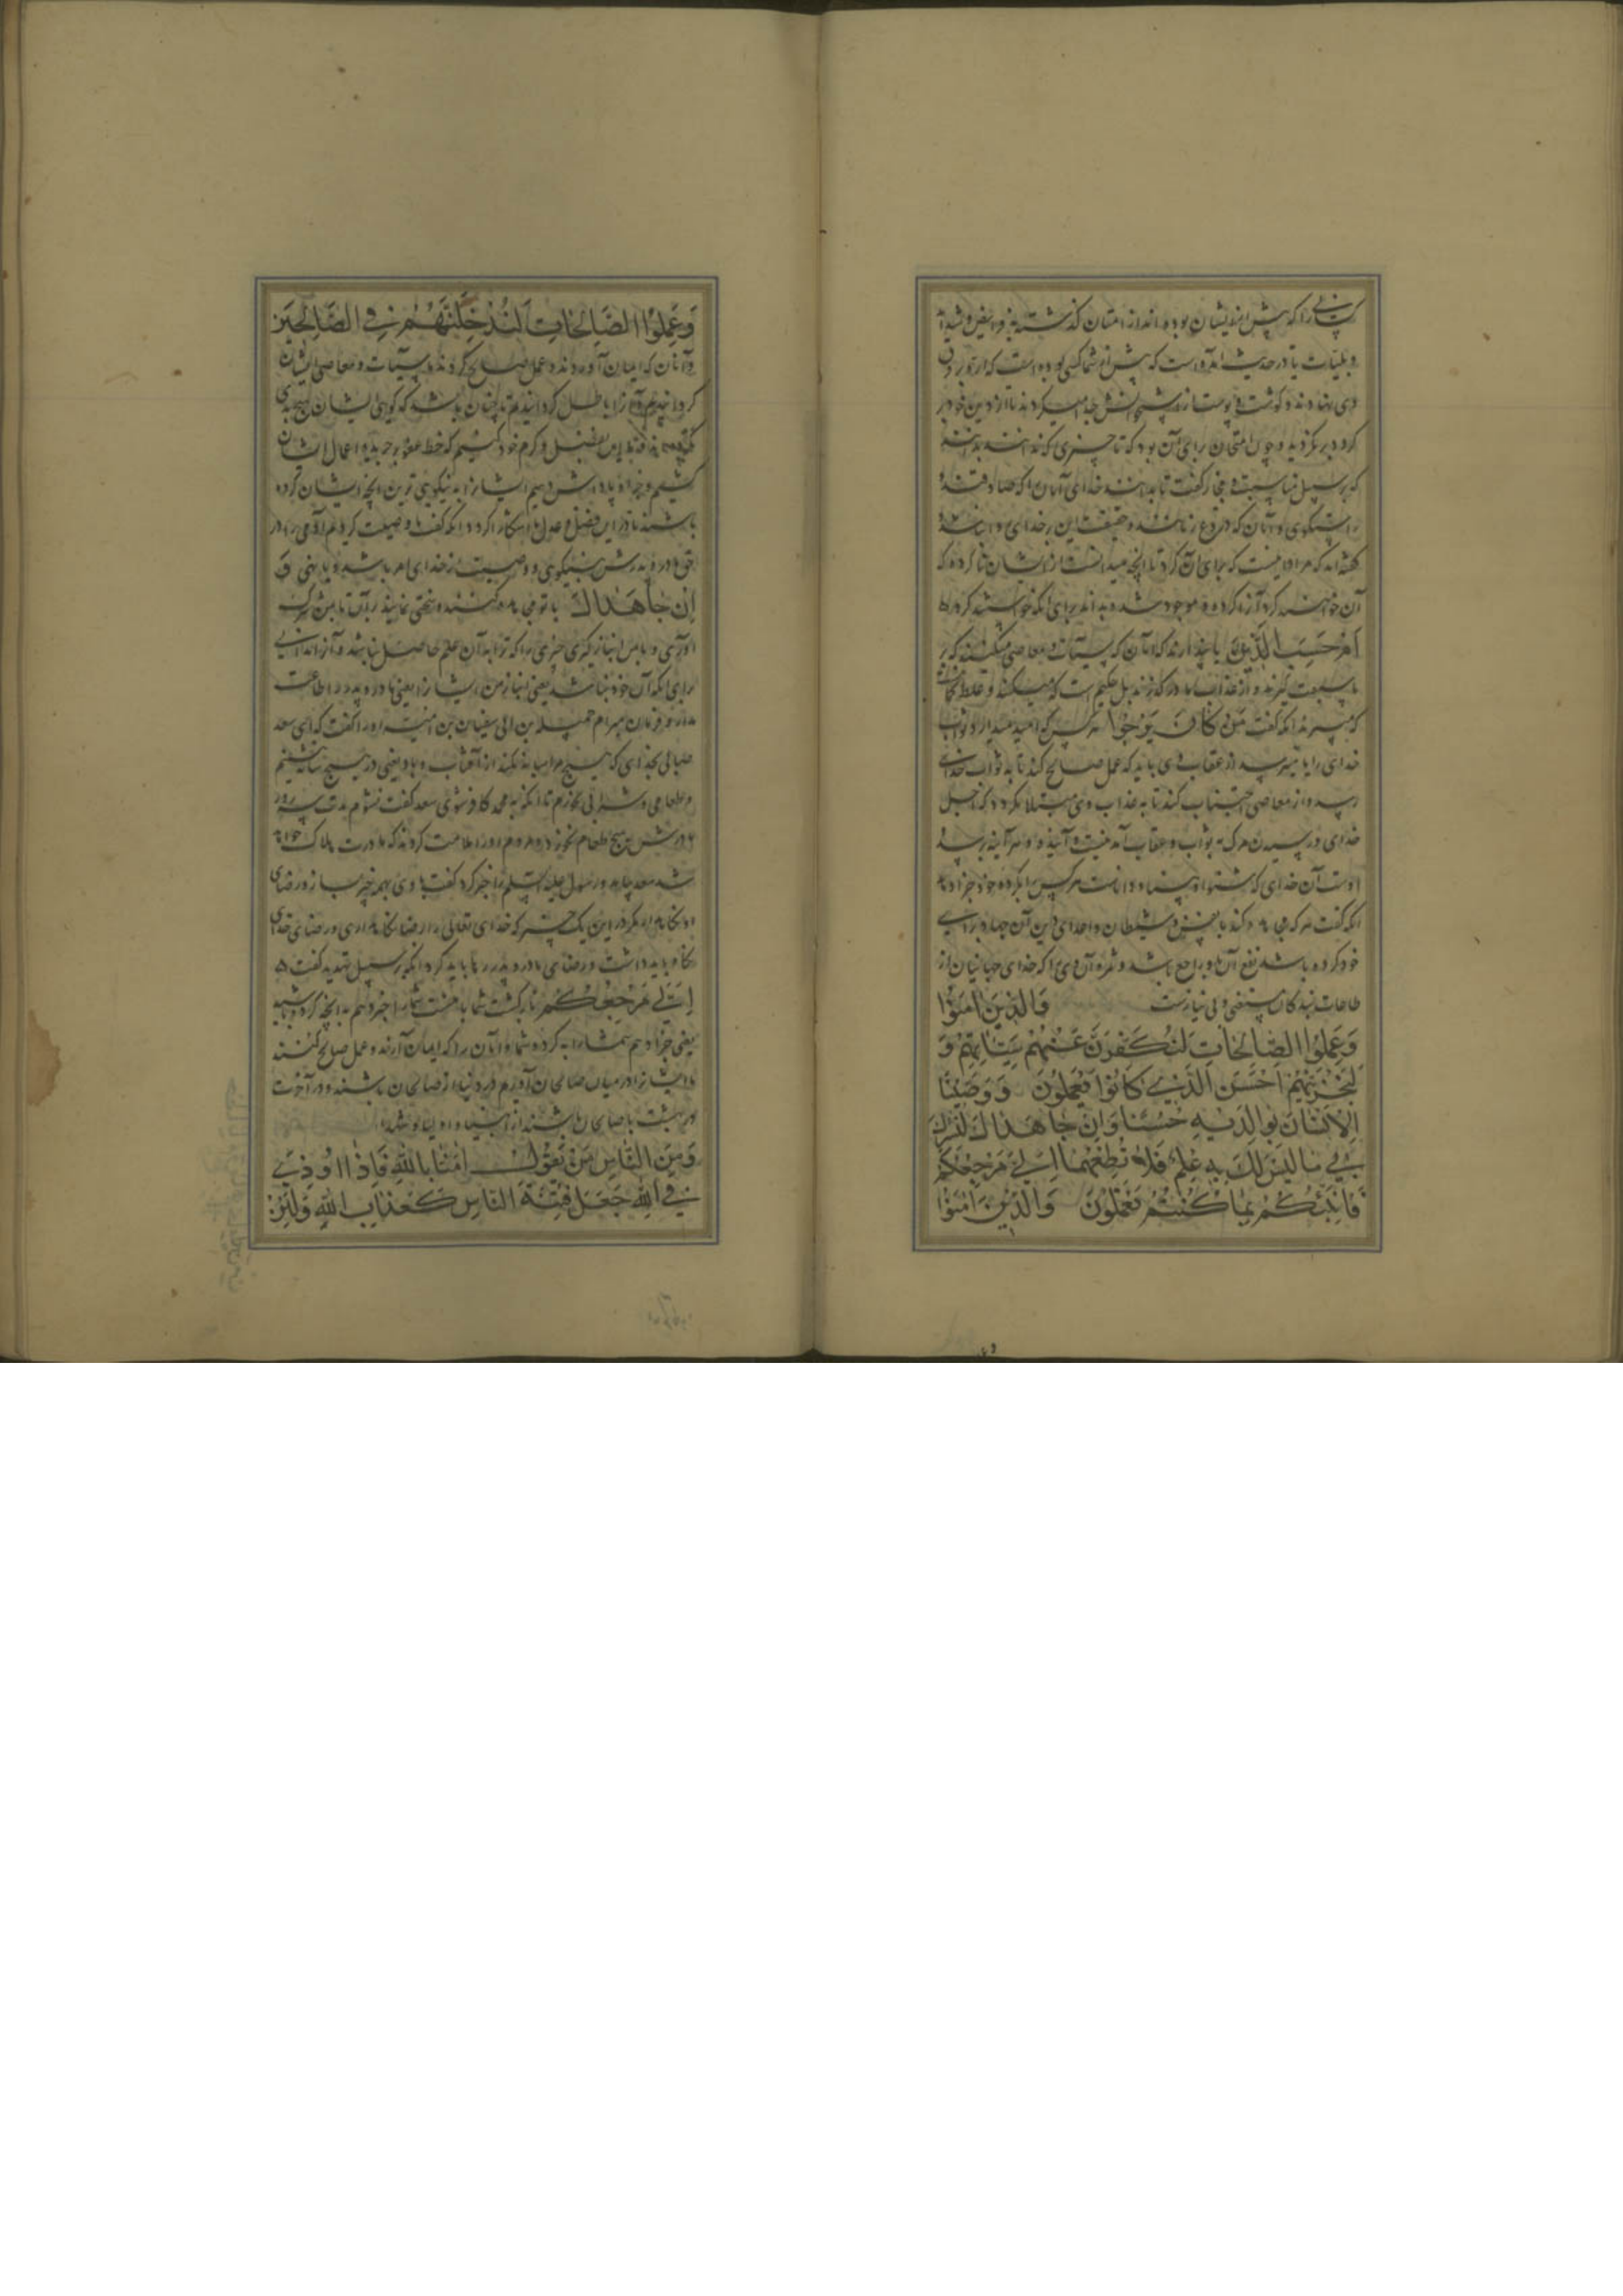 کسانی را که پیش از ایشان بوده‌اند از امتان گذشته بفرایض و شداید
و بلیات تا در حدیث آمده است که پیش از شما کسی بوده است که اره بر فرق
وی نهادند و گوشت و پوست از
کرد و بر نگردید و چون امتحان برای آن بود که تا چیزی که ندانند بدانند
که بر سبیل مناسبت و مجاز گفت تا بداند خدای آنان را که صادقند و
راستگوی و آنان که دروغ زنانند و حقیقت این بر خدای روا نباشد
آن خواهند کرد آنرا کرده و موجود شده بداند برای آنکه خواستند کرد
اَمْ حَسِبَ الَّذینَ یا پندارند که آنان که سیئات و معاصی میکنند که بر
ما سبقت گیرند و از عذاب ما در گذرند بل حکمی است که میکنند و غلط
که میبرند آنکه گفت مَنْ کانَ یَرْجُوا هر کس که امید میدارد ثواب
خدای را یا میترسد از عقاب وی باید که عمل صالح کند تا به ثواب خدای
رسد و از معاصی اجتناب کند تا به عذاب وی مبتلا نگردد که اجل
خدای در رسیدن مرگ به ثواب و عقاب آمدنیست و آینده و هر آینه برسد و
اوست آن خدای که شنوا و بینا و داناست هر کس را بکرده خود جزا دهد
آنکه گفت هر که مجاهده کند با نفس و شیطان و اعدای دین آن جهاد برای
خود کرده باشد نفع آن با او راجع باشد و ثمره آن وی را که خدای جهانیان از
طاعات بندگان مستغنی و بی نیازست وَالَّذینَ امَنُوا
وَعَمِلُوا الصّالِحاتِ لَنُکَفِّرَنَّ عَنْهُمْ سَیِّئاتِهِمْ وَ
لَنَجْزِیَنَّهُمْ اَحْسَنَ الَّذی کانُوا یَعْمَلُونَ وَوَصَّیْنَا
الْاِنْسانَ بِوالِدَیْهِ حُسْنًا وَاِنْ جاهَداکَ لِتُشْرِکَ
بی ما لَیْسَ لَکَ بِه عِلْمٌ فَلا تُطِعْهُما اِلَیَّ مَرْجِعُکُمْ
فَاُنَبِّئُکُمْ بِما کُنْتُمْ تَعْمَلُونَ وَالَّذینَ امَنُوا
وَعَمِلُوا الصّالِحاتِ لَنُدْخِلَنَّهُمْ فِی الصّالِحینَ
و آنان که ایمان آوردند و عمل صالح کردند ما سیئات و معاصی ایشان
گردانیدیم و آنرا باطل گردانیدیم تا چنان باشد که گویی ایشان هیچ بدی
نکرده‌اند فضل و کرم خود کنیم که خط عفو بر جریده اعمال ایشان
کشیم و جزا و پاداش دهیم ایشانرا به نیکوی ترین آنچه ایشان کرده
باشند تا در این فضل و عدل ما آشکارا گردد آنکه گفت ما وصیت کردیم آدمی را در
حق مادر و پدرش بنیکوی و وصیت از خدای امر باشد و یا نهی وَ
اِنْ جاهَداکَ با تو مجاهده کنند و سختی نمایند بر آن تا بمن شرک
آوری و با من انباز گیری چیزی را که ترا بدآن علم حاصل نباشد و آنرا ندانی
برای آنکه آن خود نباشد یعنی انباز من ایشانرا یعنی مادر و پدر را طاعت
مدار و فرمان مبر ام جمیله بن ابی سفیان بن امیه او را گفت که ای سعد
بخدای که هیچ مرا سایه نکند از آفتاب و باد یعنی در هیچ سایه ننشینم
و طعامی و شرابی نخورم تا آنکه به محمد کافر شوی سعد گفت نشوم مدت سه روز
مادرش هیچ طعام نخورد و مردم او را ملامت کردند که مادرت هلاک
شد سعد بیامد و رسول علیه السلم را خبر کرد گفت با وی بهمه چیز بساز و رضای
او نگاه دار مگر در این یک چیز که خدای تعالی را رضا نگاهداری و رضای خدای
نگاه باید داشت و رضای مادر و پدر رها باید کرد آنکه بر سبیل تهدید گفت
اِلَیَّ مَرْجِعُکُمْ بازگشت شما با منست شما را خبر دهم به آنچه کرده باشید
یعنی جزا دهم شما را به کرده شما و آنان را که ایمان آرند و عمل صالح کنند
ما ایشانرا در میان صالحان آوریم در دنیا از صالحان باشند و در آخرت
در بهشت با صالحان باشند از انبیا و اولیا و شهدا
وَمِنَ النّاسِ مَنْ یَقُولُ امَنّا بِاللهِ فَاِذا اُوذِیَ
فِی اللهِ جَعَلَ فِتْنَةَ النّاسِ کَعَذابِ اللهِ وَلَئِنْ